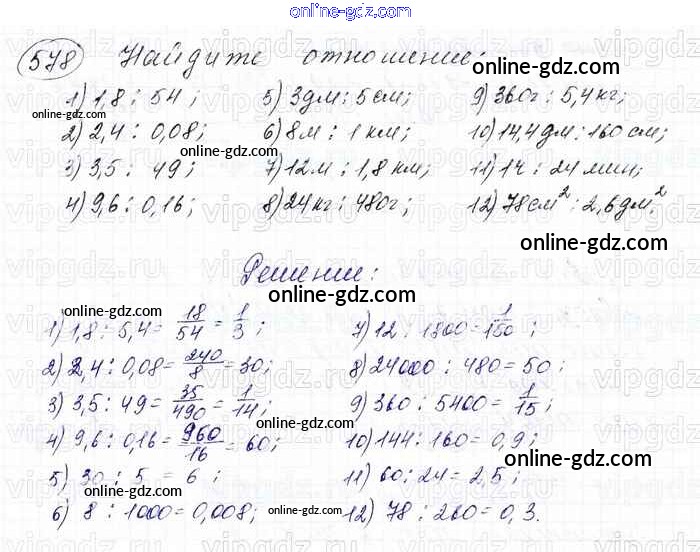 online-gdz.com
578 Найдите отношение:
1) 1,8 : 54;
2) 2,4 : 0,08;
3) 3,5 : 49;
4) 9,6 : 0,16;
5) 3дм : 5см;
6) 8м : 1км;
7) 12м : 1,8км;
8) 24кг : 480г;
9) 360г : 5,4кг;
10) 14,4дм : 160см;
11) 1ч : 24мин;
12) 78см² : 2,6дм².
Решение:
1) 1,8 : 5,4 = 18/54 = 1/3;
2) 2,4 : 0,08 = 240/8 = 30;
3) 3,5 : 49 = 35/490 = 1/14;
4) 9,6 : 0,16 = 960/16 = 60;
5) 30 : 5 = 6;
6) 8 : 1000 = 0,008;
7) 12 : 1800 = 1/150;
8) 24000 : 480 = 50;
9) 360 : 5400 = 1/15;
10) 144 : 160 = 0,9;
11) 60 : 24 = 2,5;
12) 78 : 260 = 0,3.
online-gdz.com
online-gdz.com
online-gdz.com
online-gdz.com
online-gdz.com
online-gdz.com
online-gdz.com
online-gdz.com
online-gdz.com
online-gdz.com
online-gdz.com
online-gdz.com